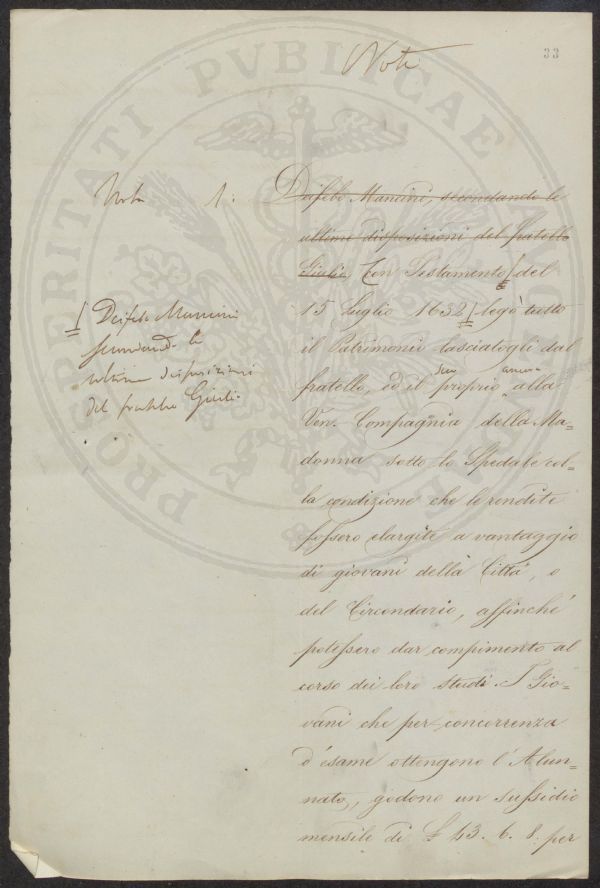 Note
33
Nota 1:
Deifebo Mancini, secondando le
ultime disposizioni del fratello
Giulio, Con Testamento del
15 Luglio 1632 legò tutto
il Patrimonio lasciatogli dal
suo ancora
fratello, ed il proprio alla
Ven. Compagnia della Ma=
donna sotto lo Spedale col=
la condizione che le rendite
fossero elargite a vantaggio
di giovani della Città, o
del Circondario, affinché
potessero dar compimento al
corso dei loro studi. I Gio=
vani che per concorrenza
d'esame ottengono l'Alun=
nato, godono un sussidio
mensile di £ 43. 6. 8. per
Deifebo Mancini
secondando le
ultime disposizioni
del fratello Giulio
PROSPERITATI PVBLICAE